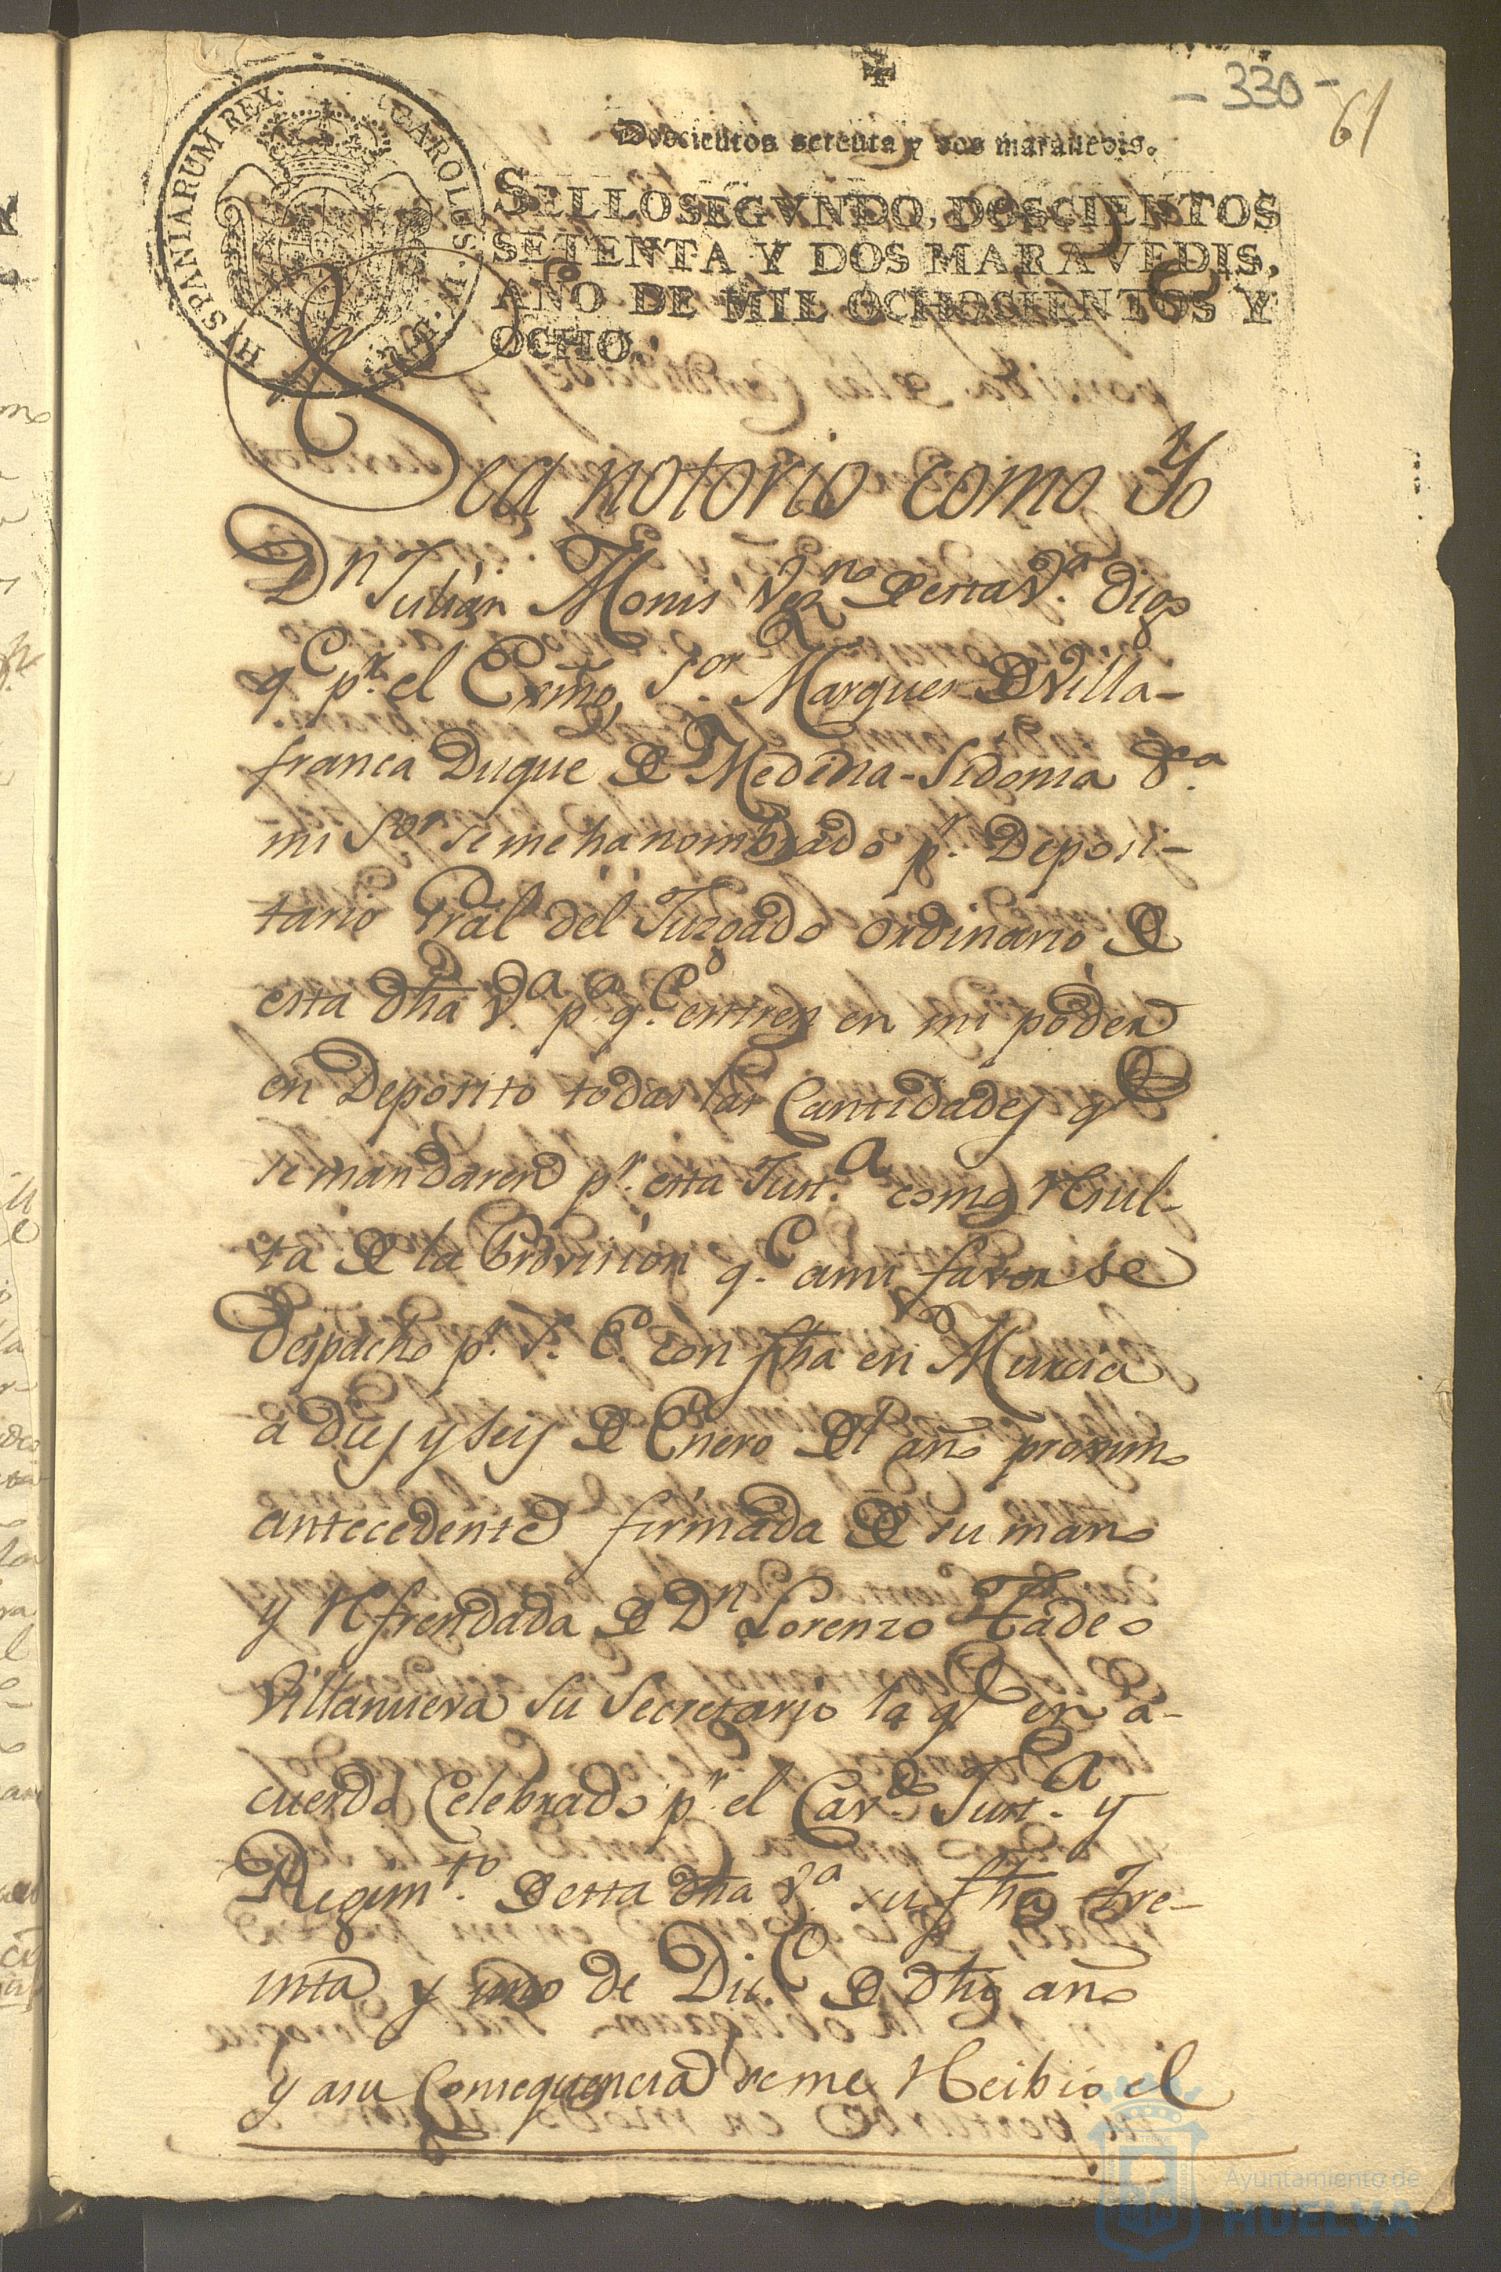 - 330 -
61
Doscientos setenta y dos maravedis.
CAROLUS. IV. D. G. HISPANIARUM REY.
SELLO SEGVNDO, DOSCIENTOS
SETENTA Y DOS MARAVEDIS,
AÑO DE MIL OCHOCIENTOS Y
OCHO.
Sea notorio como Yo
Dn Julián Monis Vezno de esta Va. digo
qe pr. el Exmo, Sor. Marques de Villa-
franca Duque de Medina-Sidonia &ca.
mi Sor se me ha nombrado pr. Deposi-
tario Gral del Juzgado ordinario de
esta dha va. pa. qe. entren en mi poder
en Deposito todas las Cantidades qe
se mandaren pr. esta Justa. como resul-
ta de la Provision qe. ami favor se
despacho pr. S. Eo. con fha en Murcia
a diez y seis de Enero del año proximo
antecedente firmada de su mano
y refrendada de Dn Lorenzo Tadeo
Villanueva su Secretario la ql en a-
cuerdo Celebrado pr. el Cavdo. Justa. y
Regimto. de esta dha va. su fha tre-
inta y uno de Dice. de dho año
y asu Consequencia se me recibio el
Ayuntamiento de
HUELVA